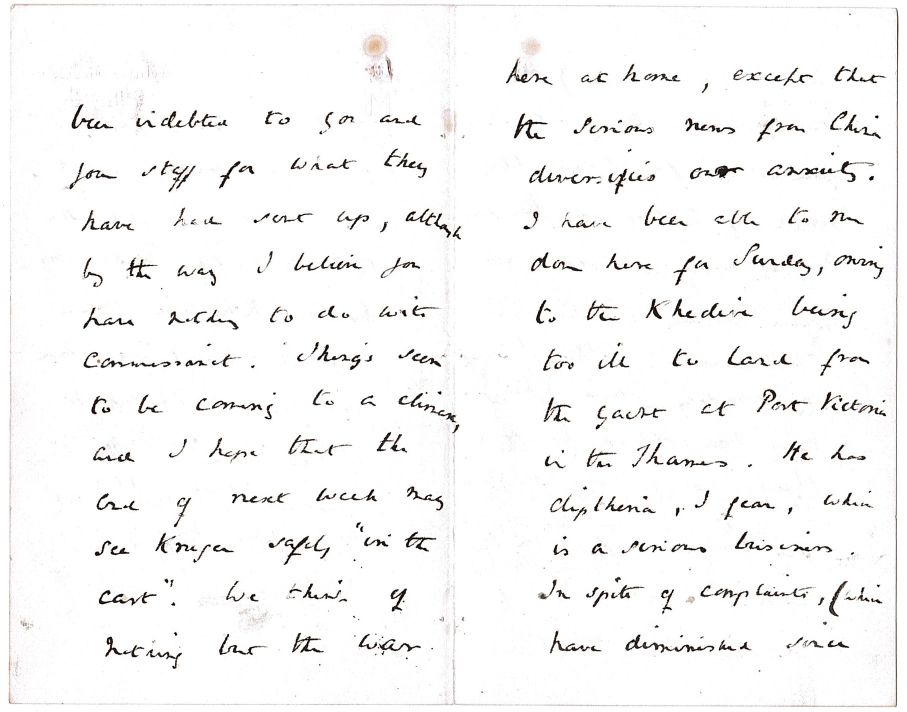 been indebted to you and
your staff for what they
have had sent up, although
by the way I believe you
have nothing to do with
Commissariat. Things seem
to be coming to a climax,
and I hope that the
end of next week may
see Kruger safely "in the
cart". We think of
nothing but the war
here at home, except that
the serious news from China
diversifies our anxiety.
I have been able to run
down here for Sunday, owing
to the Khedive being
too ill to land from
the yacht at Port Victoria
in the Thames. He has
diptheria, I fear, which
is a serious business.
In spite of complaints, (which
have diminished since